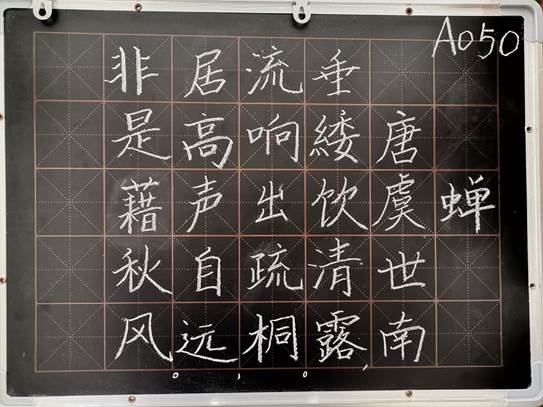 A050
蝉
唐虞世南
垂緌饮清露，
流响出疏桐。
居高声自远，
非是藉秋风。